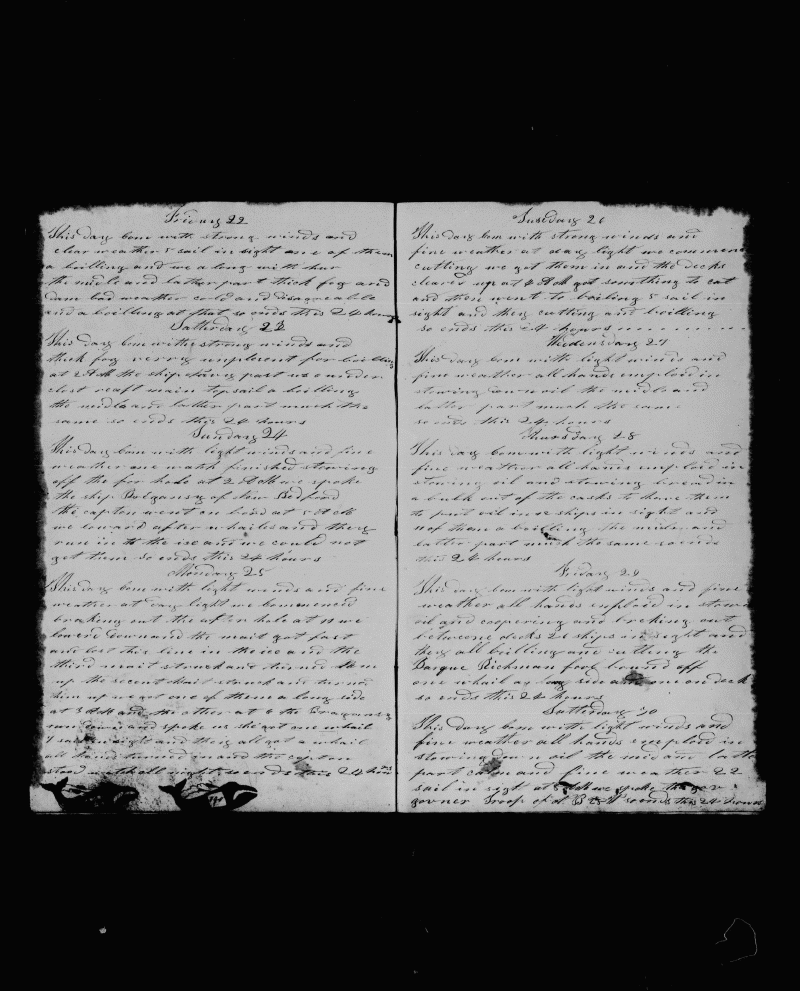 Friday 22
This day Com with strong winds and
clear weather 5 sail in sight one of them
a boiling and we along with hur
the midle and latter part thick fog and
Dam bad weather cold and disagreable
and a boiling at that so ends this 24 hours
Satterday 23
This day Com with strong winds and
thick fog verry unplesent for boiling
at 2 the ship
clost reaft main topsail a boilling
the midle and latter part much the
same so ends this 24 hours
Sunday 24
This day Com with light winds and fine
weather one watch finished stowing
off the for hole at 2 we spoke
the ship of New Bedford
the capton went on bord at 5
we loward after whailes and they
run in to the ise and we could not
get them so ends this 24 hours
Monday 25
This day Com with light winds and fine
weather at day light we Commened
braking out the after hole at 10 we
lowerd down and the mait got fast
and lost his line in the ice and the
third mait struck and
up the secont mait struck and
him up we got one of them a long side
at 3 and the other at 6 the
and spoke us she got one whail
7 sail in sight and they all got a whail
all hands turned in and the capton
24 hours
Tusday 26
This day Com with strong winds and
fine weather at day light we commenc
cutting we got them in and the decks
cleared up at got somthing to eat
and then went to boiling 5 sail in
sight and they cutting and boilling
so ends this 24 hours
Wedensday 27
This day Com with light winds and
fine weather all hands emploid in
stowing down oil the midle and
latter part much the same
so ends this 24 hours
Thursday 28
This day Com with light winds and
fine weather all hands emploid in
stowing oil and stowing bread in
a bulk out of the casks to have them
to put oil in ships in sight and
of them a boilling the midle and
latter part much the same so ends
this 24 hours
Friday 29
This day Com with light winds and fine
weather all hands emploid in
oil and coopering and breking out
betweone decks 21 ships in sight and
they all boilling and cutting the
Barque Richman full bound off
one whail a long side and one on deck
so ends this 24 hours
Satterday 30
This day Com with light winds and
fine weather all hands emploid in
stowing down oil the mid and latter
part calm and fine weather 22
sail in sight at we spoke the
govner Troop so ends this 24 hours